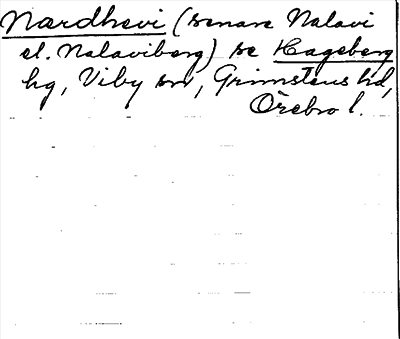 Nardhevi (senare Nalavi
el. Nalaviberg) se Hageberg
hg, Viby sn, Grimstens hd,
Örebro l.